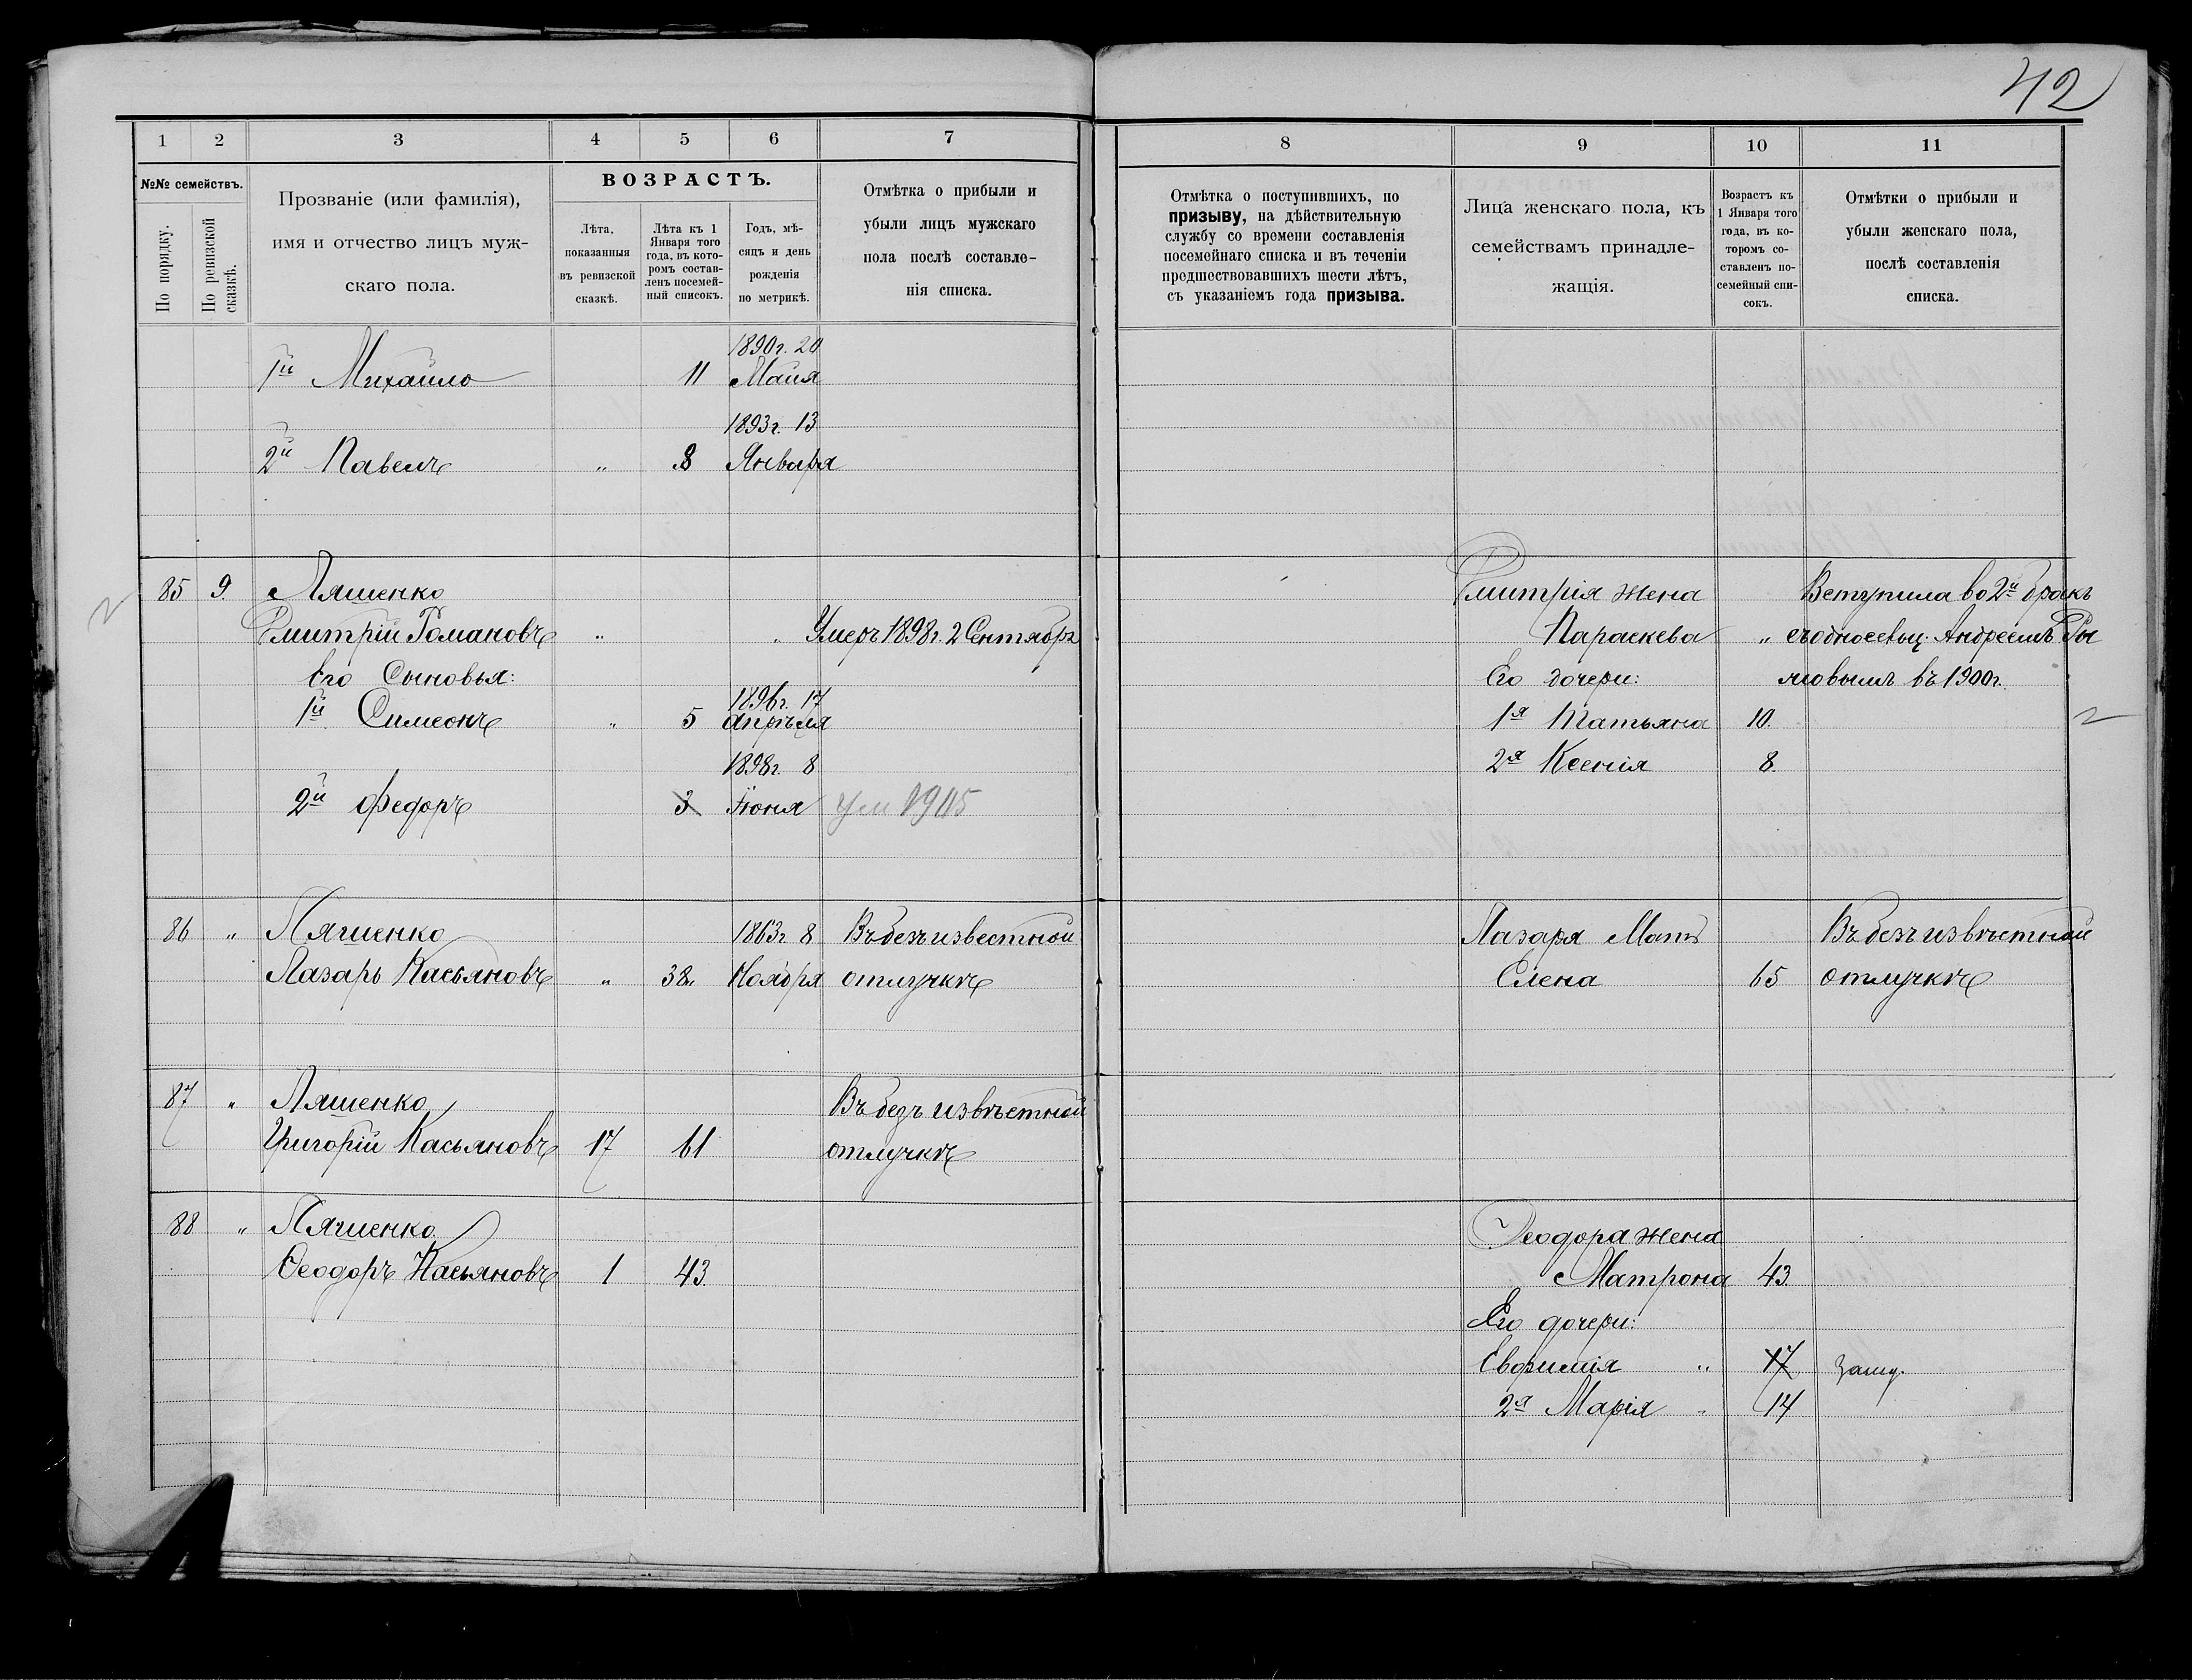 42
1 2 3 4 5 6 7
№№ семействъ.
По порядку.
По ревизской сказкѣ.
Прозваніе (или фамилія),
имя и отчество лицъ муж-
скаго пола.
ВОЗРАСТЪ.
Лѣта,
показанныя
въ ревизской
сказкѣ.
Лѣта къ 1
Января того
года, въ кото-
ромъ состав-
ленъ посемей-
ный списокъ.
Годъ, мѣ-
сяцъ и день
рожденія
по метрикѣ.
Отмѣтка о прибыли и
убыли лицъ мужскаго
пола послѣ составле-
нія списка.
1890г. 20
1й Михайло 11 Маия
1893г. 13
2й Павелъ " 8 Января
85 9. Ляшенко
Дмитрій Романовъ " " Умеръ 1898г. 2 Сентябрь
Его Сыновья:
1896г. 17
1й Симеонъ " 5 апрѣля
1898г. 8
2й Федоръ 3 Іюня ум 1905
86 " Ляшенко 1863г. 8 Въ безъизвестной
Лазарь Касьяновъ " 38" Ноября отлучкѣ
87 " Ляшенко Въ безъизвѣстной
Григорій Касьяновъ 17 61 отлучкѣ
88 " Ляшенко
Ѳеодоръ Касьяновъ 1 43.
8 9 10 11
Отмѣтка о поступившихъ, по
призыву, на дѣйствительную
службу со времени составленія
посемейнаго списка и въ теченіи
предшествовавшихъ шести лѣтъ,
съ указаніемъ года призыва.
Лица женскаго пола, къ
семействамъ принадле-
жащія.
Возрастъ къ
1 Января того
года, въ ко-
торомъ со-
ставленъ по-
семейный спи-
сокъ.
Отмѣтки о прибыли и
убыли женскаго пола,
послѣ составленія
списка.
Дмитрія жена Вступила во 2й бракъ
Параскева " съ односельц. Андреемъ
Его дочери: въ 1900г.
1я Татьяна 10.
2я Ксенія 8.
Лазаря Мать Въ безъизвѣстной
Елена 65 отлучкѣ
Ѳеодора жена
Матрона 43.
Его дочери:
Евфимія " 17 замуж.
2я Марія " 14